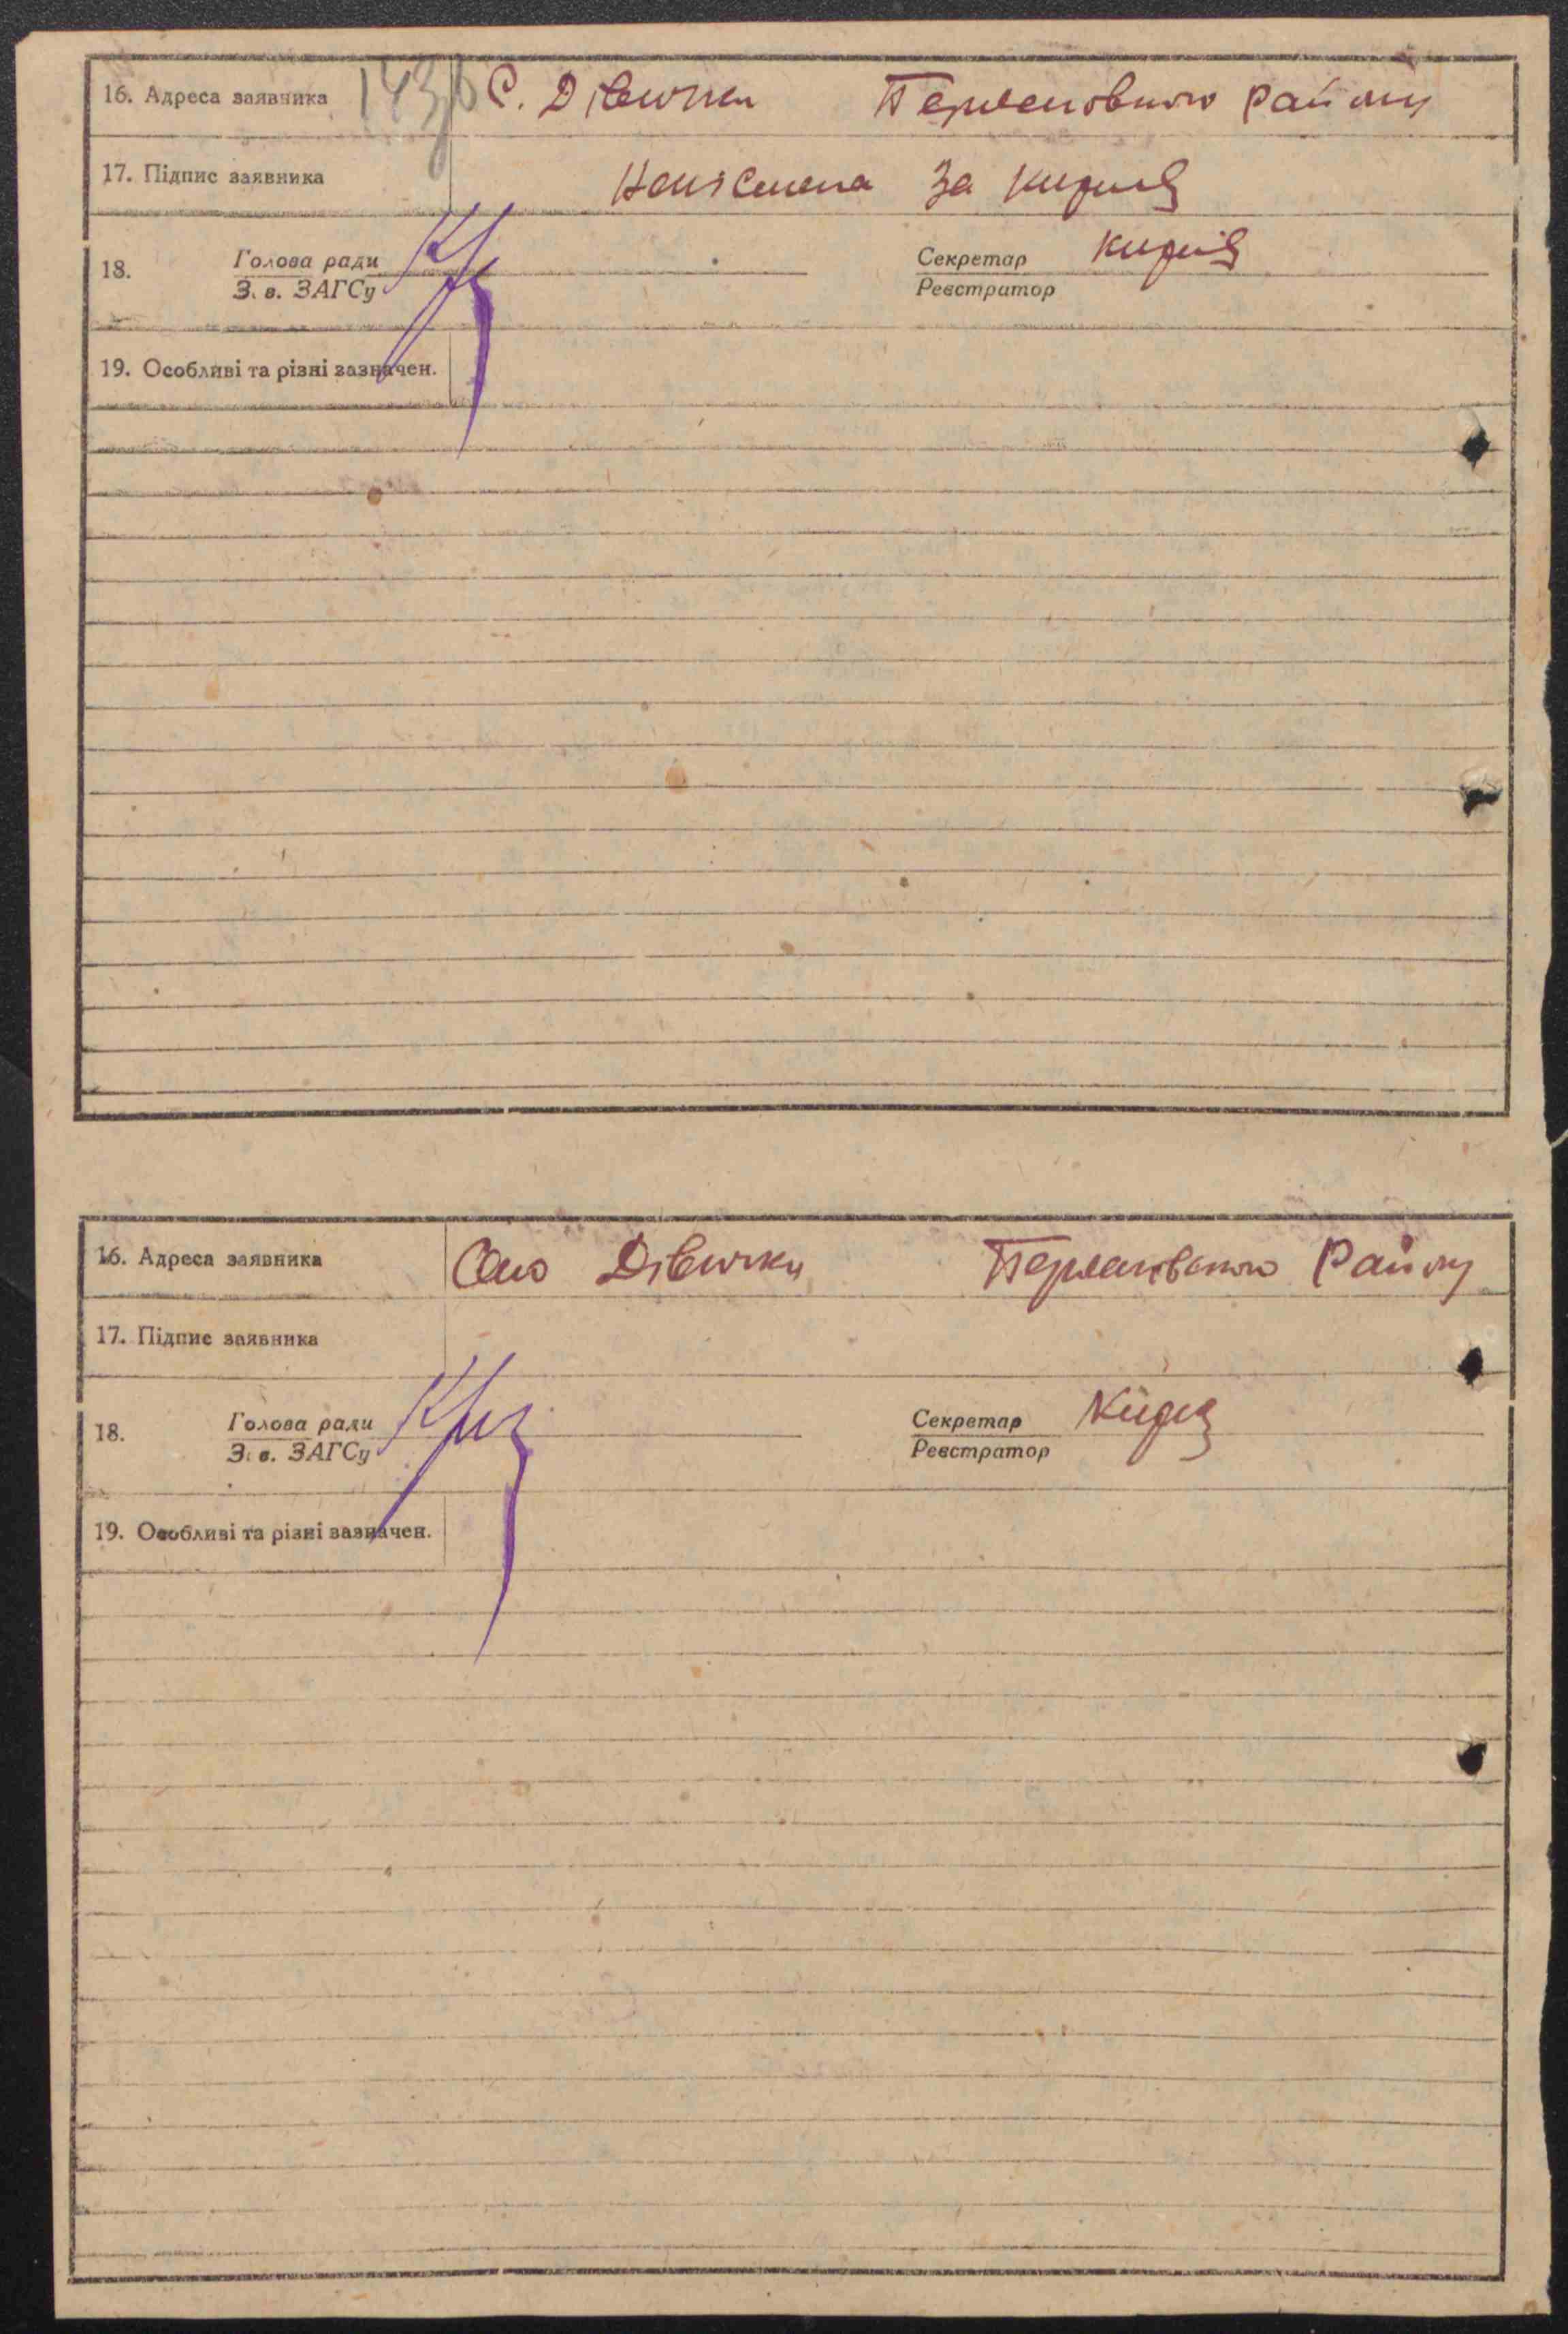 16. Адреса заявника 143 С. Дівички Переяславського району
17. Підпис заявника Неписьмена За
18. Голова ради Секретар
З. в. ЗАГСу Реєстратор
19. Особливі та різні зазначен.
16. Адреса заявника Село Дівички Переяславського Району
17. Підпис заявника
18. Голова ради Секретар
З. в. ЗАГСу Реєстратор
19. Особливі та різні зазначен.